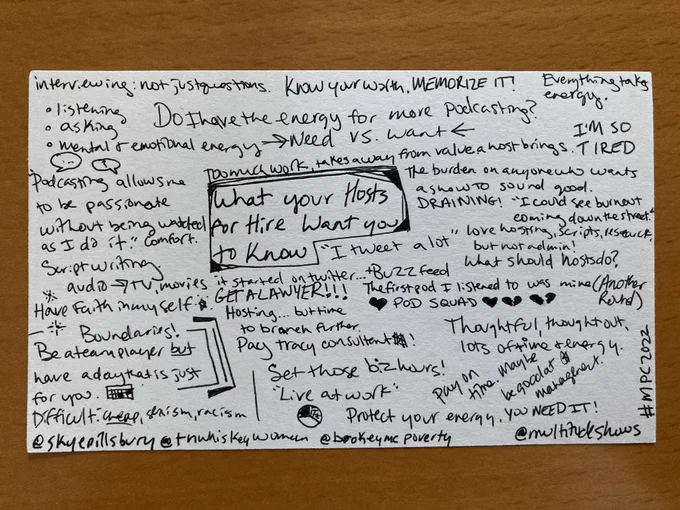 interviewing: not just questions. Know your worth, MEMORIZE IT! Everything takes energy.
• listening
• asking
• mental & emotional energy
Do I have the energy for more podcasting?
→ Need vs. want ←
I'M SO TIRED
Too much work, takes away from value a host brings.
Podcasting allows me
to be passionate
without being watched
as I do it." Comfort.
What your Hosts
for Hire Want you
to Know
The burden on anyone who wants
a show to sound good.
DRAINING! "I could see burnout
coming down the street."
"I tweet a lot"
love hosting, scripts, research,
but not admin!
What should hosts do?
Script writing
audio → TV, movies
Have Faith in myself
it started on twitter... + Buzzfeed
GET A LAWYER!!!
The first pod I listened to was mine (Another Round)
♥ POD SQUAD ♥
Hosting... but time
to branch further.
Pay tracy consultant $!
Boundaries!
Be a team player but
have a day that is just
for you.
Thoughtful, thought out,
lots of time & energy.
pay on
time. maybe
be good at
management.
Set those biz hours!
"Live at work"
Difficult: cheap, sexism, racism
Protect your energy, YOU NEED IT!
#MPC2022
@skyepillsbury @tnwhiskeywoman @brokeymcpoverty @multitudeshows